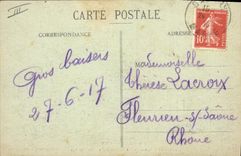 CARTE POSTALE
CORRESPONDANCE
ADRESSE
Gros baisers
27-6-17
Mademoiselle
Thérèse Lacroix
Fleurieu-s/-Saône
Rhône
10